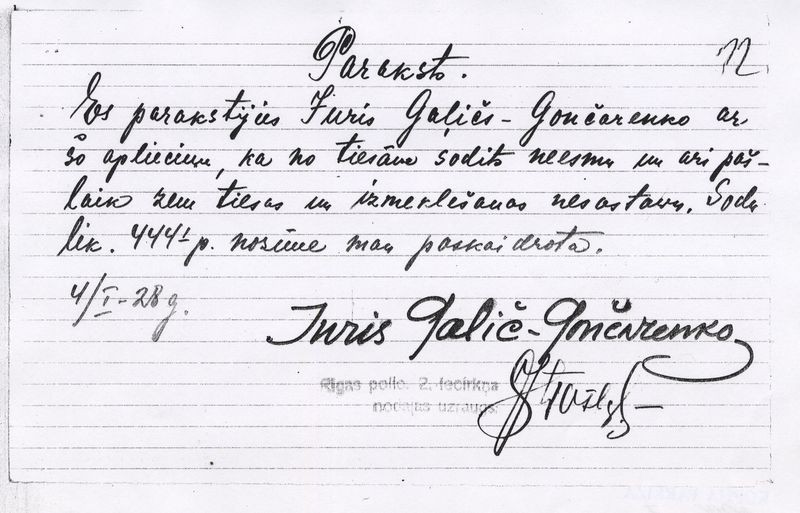 12
Paraksts.
Es parakstijies Juris Gaļičs-Gončarenko ar
šo apliecinu, ka no tiesām sodits neesmu un ari paš-
laik zem tiesas un izmeklēšanas nesastāvu. Sodu
lik. 444¹ p. nozīme man paskaidrota.
4/I-28 g.
Juris Galič-Gončarenko
Rigas polic. 2. iecirkņa
nodaļas uzraugs